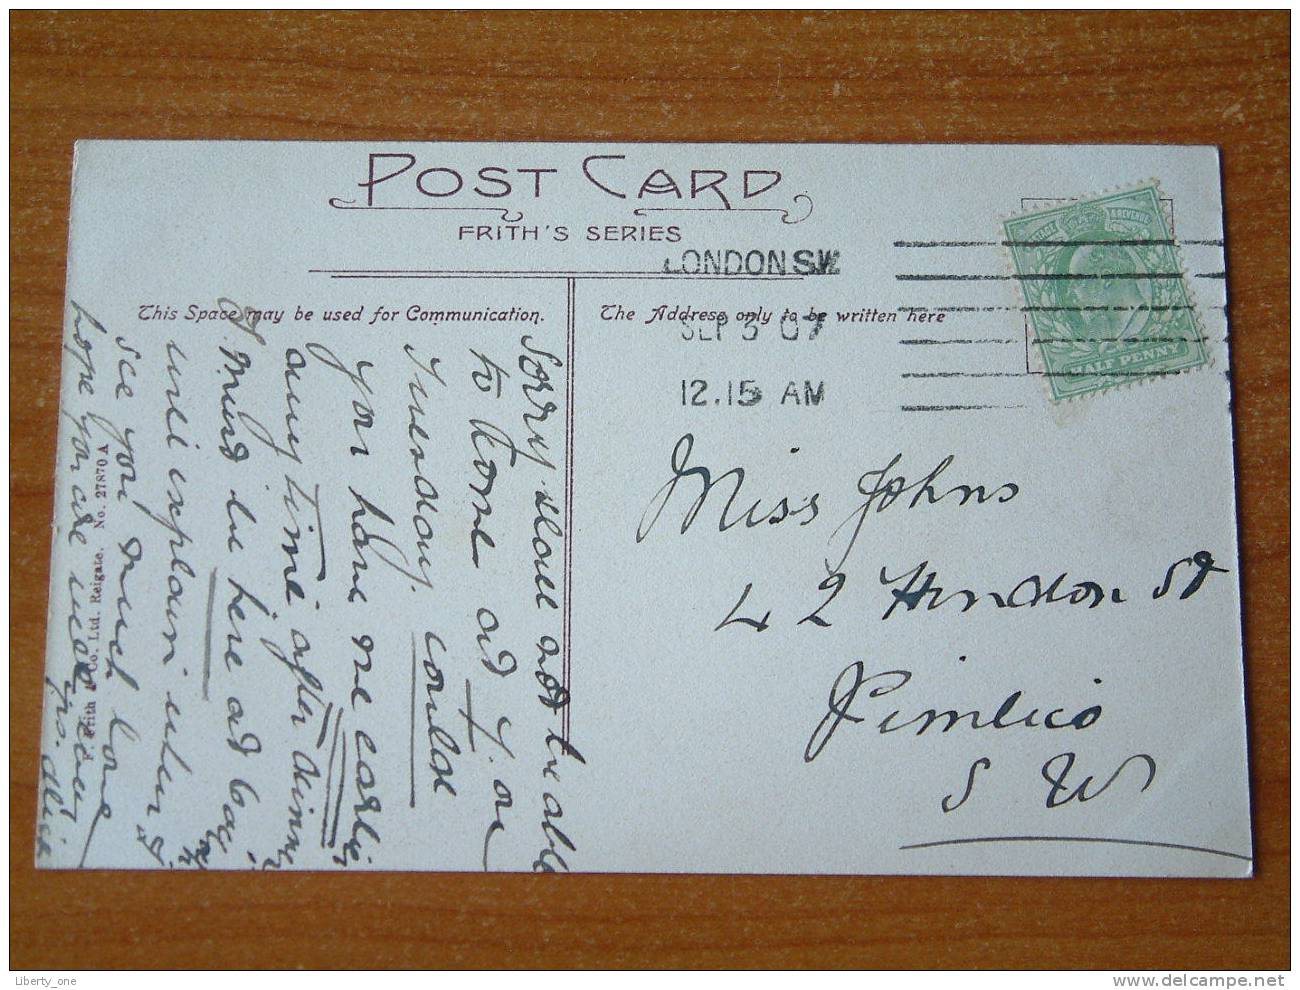 POST CARD
FRITH'S SERIES
LONDON S.W
SEP 3 07
12.15 AM
POSTAGE & REVENUE
HALF PENNY
This Space may be used for Communication.
The Address only to be written here
Sorry shall not be able
to come at 7. on
Tuesday. could
you have me earlier
any time after dinner
I must be here at
will explain when I
see you much love
hope you are
Miss Johns
42 Hindon St
Pimlico
S W
F. Frith & Co. Ltd. Reigate. No. 27870 A
Liberty_one
www.delcampe.net